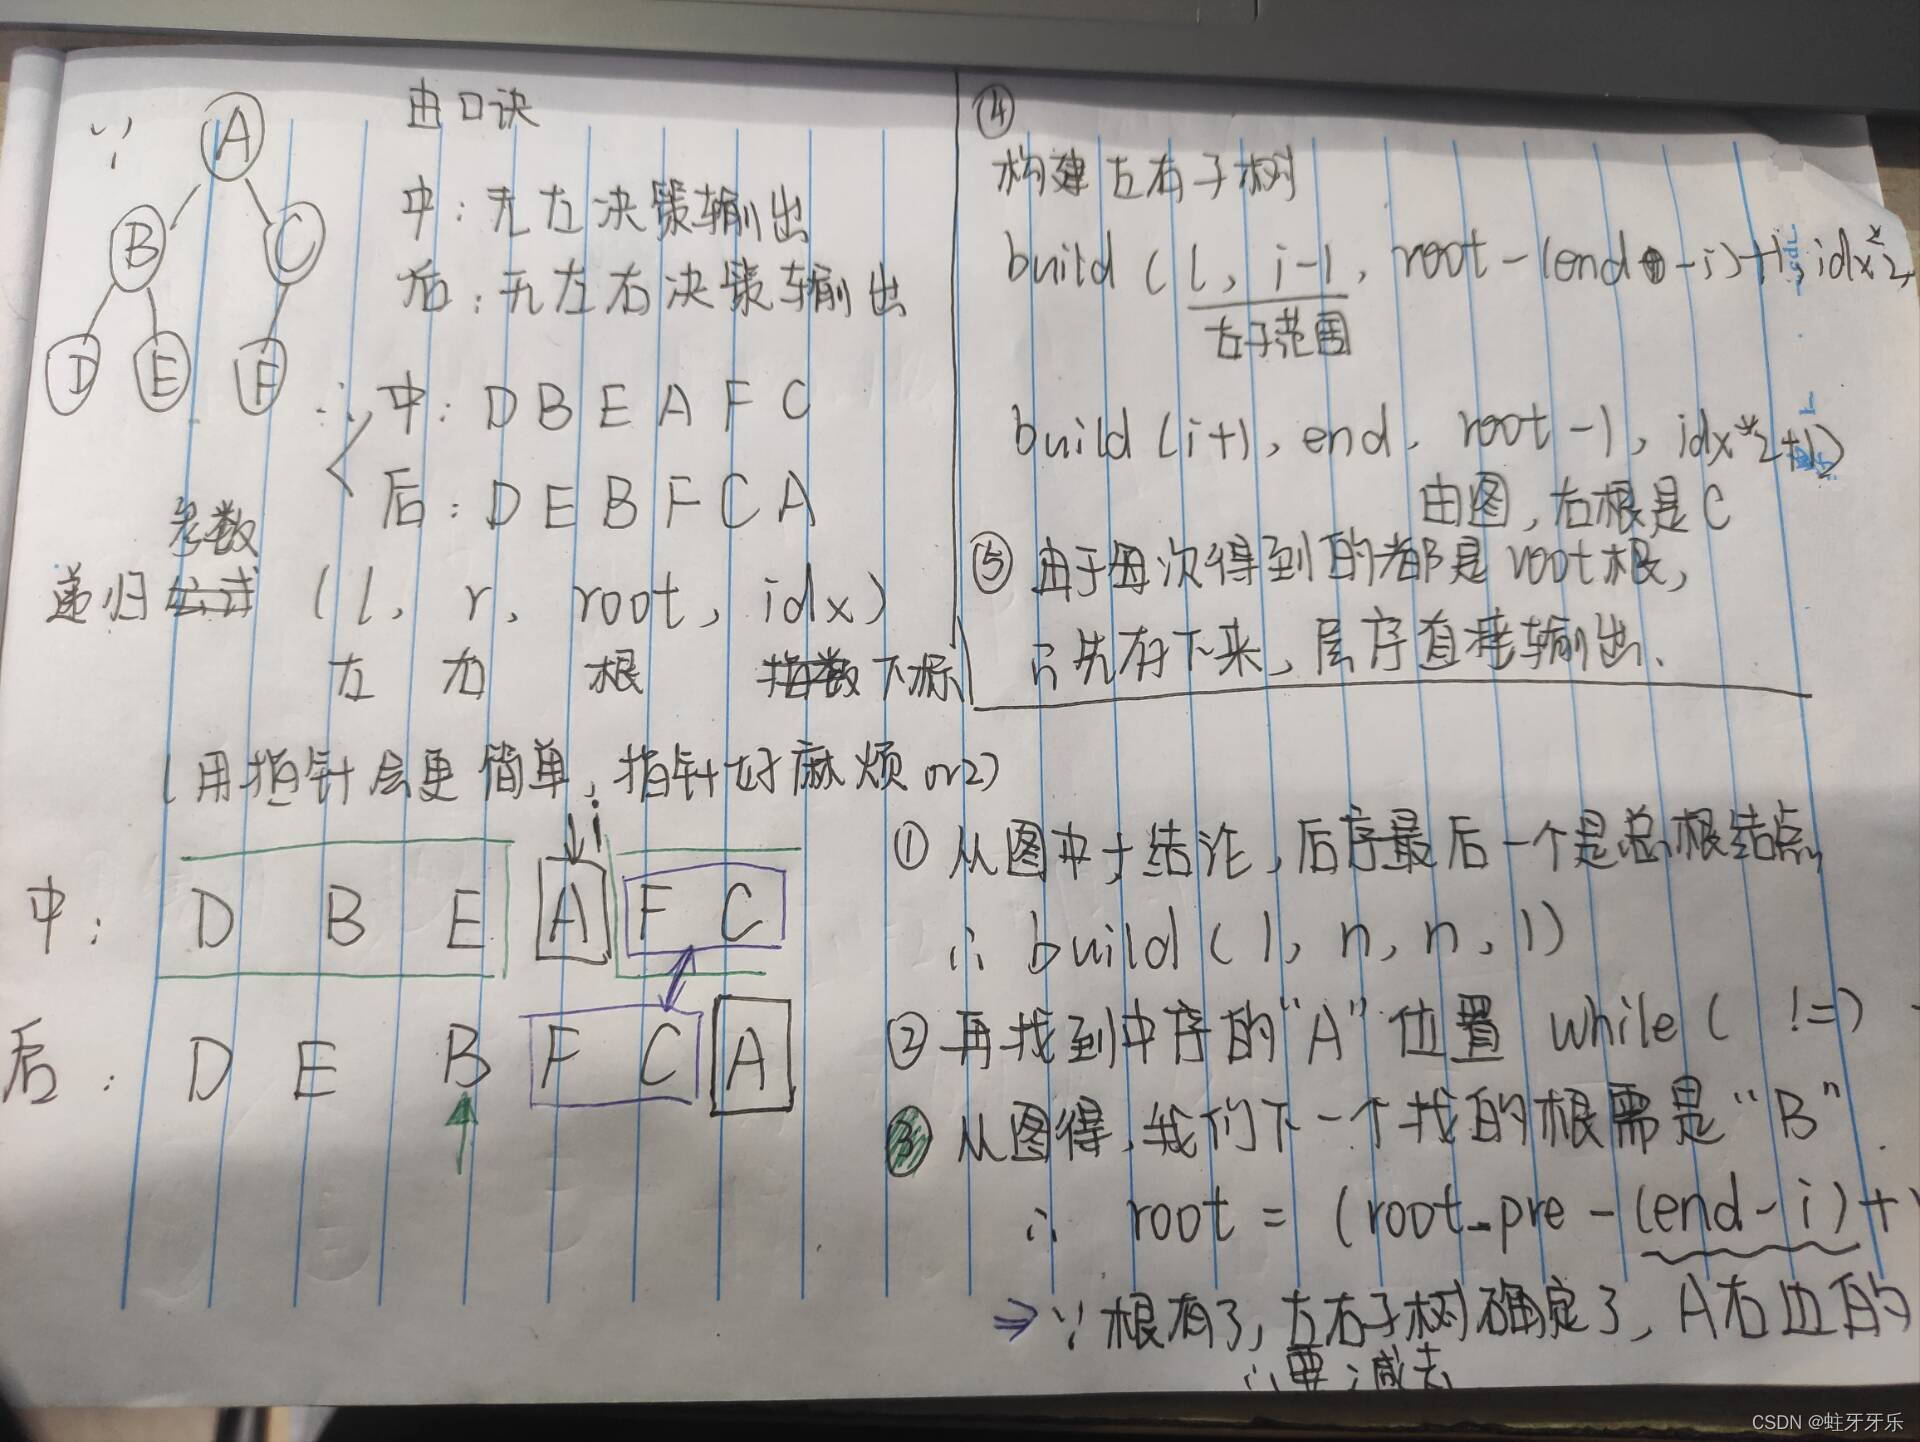 ∵
A
B C
D E F
由口诀
中：无左决策输出
后：无左右决策输出
∴中：D B E A F C
后：D E B F C A
参数
递归公式 (l, r, root, idx)
左 右 根 指数下标
(用指针会更简单, 指针好麻烦 orz)
i
中：D B E A F C
后：D E B F C A
④
构建左右子树
build (l, i-1, root-(end-i)+1, idx*2,
左子范围
build (i+1, end, root-1, idx*2+1)
由图, 右根是C
⑤ 由于每次得到的都是root根,
∴先存下来, 层序直接输出.
① 从图中+结论, 后序最后一个是总根结点,
∴ build (1, n, n, 1)
② 再找到中序的"A"位置 while ( !=)
③ 从图得, 我们下一个找的根需是"B".
∴ root = (root_pre-(end-i)+
⇒ ∵根有了, 左右子树确定了, A右边的
∴要减去
CSDN @蛀牙牙乐